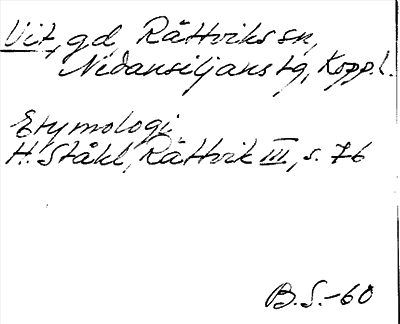 Vit, gd, Rättviks sn,
Nedansiljans tg, Kopp.l.
Etymologi.
H. Ståhl, Rättvik III, s. 76
B.S.-60